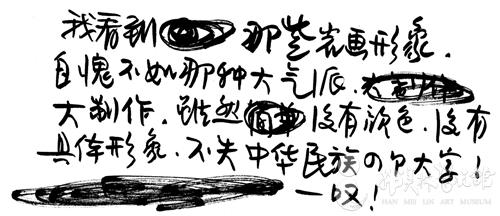 我看到 那些岩画形象.
自愧不如那种大气派.
大制作. 虽然 没有颜色. 没有
具体形象. 不失中华民族の个大字!
一叹!
韩美林艺术馆
HAN MEI LIN ART MUSEUM